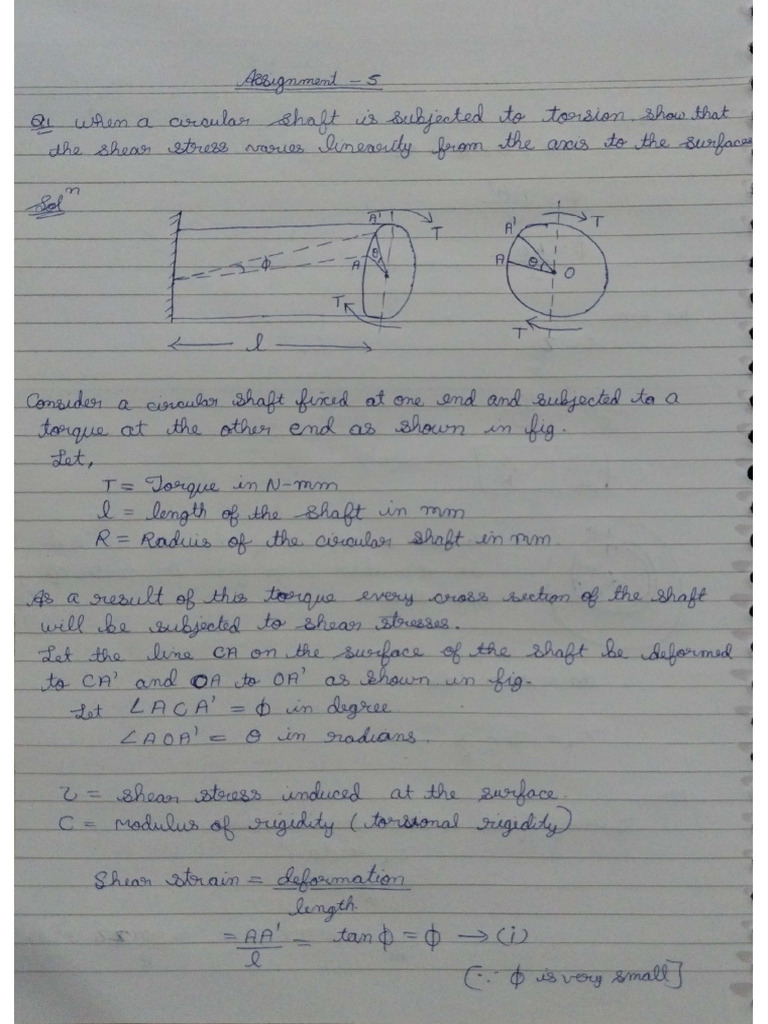 Assignment - 5
Q1 When a circular shaft is subjected to torsion show that
the shear stress varies linearly from the axis to the surface
Solⁿ
A' T
A θ
ϕ
T
l
A' T
A θ O
T
Consider a circular shaft fixed at one end and subjected to a
torque at the other end as shown in fig.
Let,
T = Torque in N-mm
l = length of the shaft in mm
R = Radius of the circular shaft in mm
As a result of this torque every cross section of the shaft
will be subjected to shear stresses.
Let the line CA on the surface of the shaft be deformed
to CA' and OA to OA' as shown in fig.
Let ∠ACA' = ϕ in degree
∠AOA' = θ in radians.
τ = shear stress induced at the surface.
C = Modulus of rigidity (torsional rigidity)
Shear strain = deformation
length
= AA'/l = tan ϕ = ϕ → (i)
(∵ ϕ is very small]